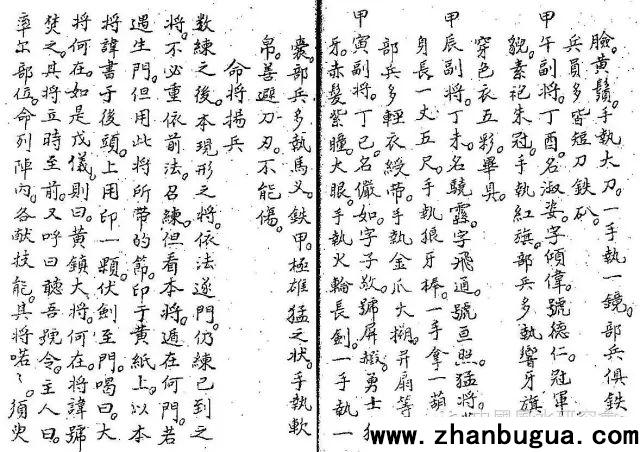 臉。黃鬚。手執大刀。一手執一鏡。部兵俱鉄
兵員多皆短刀鉄
甲午副將。丁酉。名淑姿。字傾偉。號德仁。冠軍
貌。素祀朱冠。手執紅旗。部兵多執響牙旗
穿色衣五彩。畢具。
甲辰副將。丁未。名驍靈。字飛通。號亘照。猛將
身長一丈五尺。手執狼牙棒。一手拿一葫
部兵多輕衣綬帶。手執金爪大搠。幷扇等
甲寅副將。丁巳。名儼如。字子敬。號屏 勇士
牙。赤髮紫瞳。大眼。手執火輪長劍。一手執一
囊。部兵多執馬义。鉄甲。極雄猛之状。手執軟
帛。善避刀刃。不能傷。
命將揚兵
数練之後。本現形之將。依法逐門。仍練已到之
將。不必重依前法。召練。但看本將。遁在何門。若
遇生門。但用此將所帶的節印于黃紙上。以本
將諱書于後頭。上用印一顆。伏劍至門。喝曰。大
將何在。如是戊儀。則曰。黃鎮大將。何在。將諱號
焚之。其將立時至前。又呼曰。聽吾號令。主人曰。
率尔部位。命列陣內。各献技能。其將喏ミ。須臾
www.zhanbugua.com